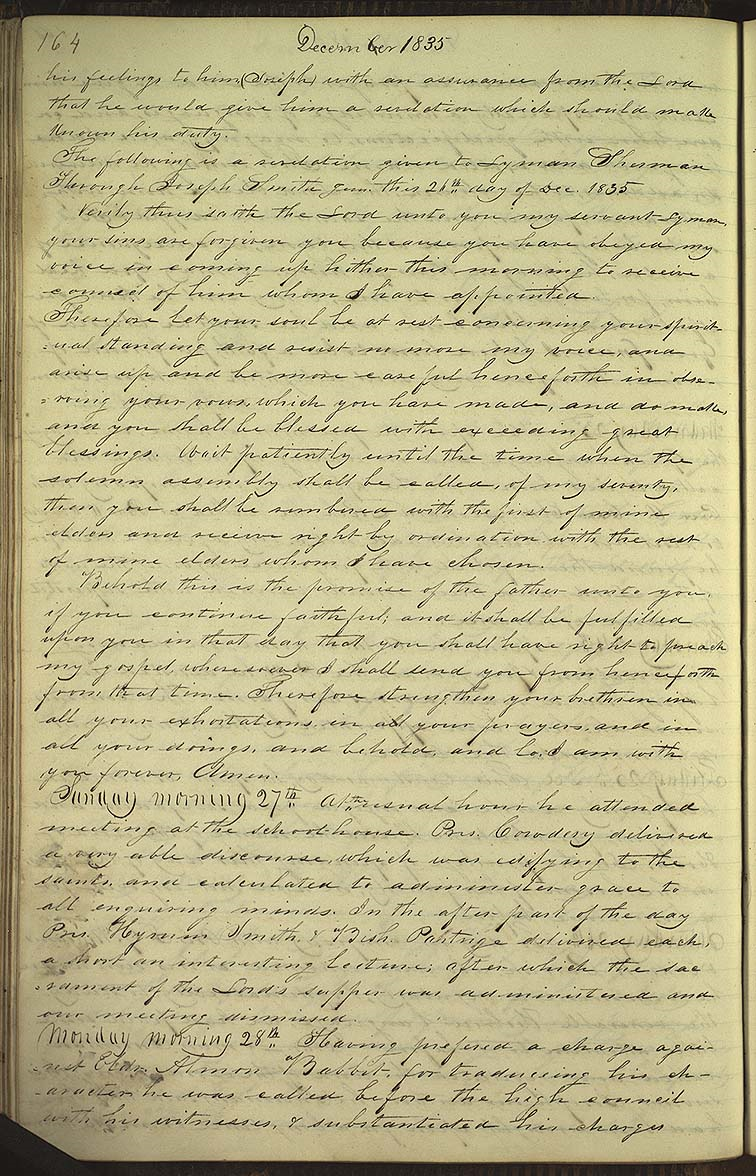 164 December 1835
his feelings to him, (Joseph) with an assurance from the Lord
that he would give him a revelation which should make
known his duty.
The following is a revelation given to Lyman Sherman
Through Joseph Smith jun. this 26th day of Dec. 1835
Verily thus saith the Lord unto you my servant Lyman,
your sins are forgiven you because you have obeyed my
voice in coming up hither this morning to receive
council of him whom I have appointed.
Therefore let your soul be at rest concerning your spirit-
=ual standing and resist no more my voice, and
arise up and be more careful henceforth in obse-
=rving your vows, which you have made, and do make,
and you shall be blessed with exceeding great
blessings. Wait patiently until the time when the
solemn assembly shall be called, of my seventy,
then you shall be numbered with the first of mine
elders and receive right by ordination with the rest
of mine elders whom I have chosen.
Behold this is the promise of the father unto you
if you continue faithful; and it shall be fulfilled
upon you in that day that you shall have right to preach
my gospel wheresoever I shall send you from henceforth
from that time. Therefore strengthen your brethren in
all your exhortations, in all your prayers, and in
all your doings, and behold, and lo, I am with
you forever, Amen.
Sunday morning 27th At the usual hour he attended
meeting at the schoolhouse. Pres. Cowdery delivered
a very able discourse, which was edifying to the
saints, and calculated to administer grace to
all enquiring minds. In the after part of the day
Pres. Hyrum Smith & Bish. Partrige delivered each,
a short an interesting lecture; after which the sac
=rament of the Lord's supper was administered and
our meeting dismissed.
Monday morning 28th Having prefered a charge agai-
=nst Eldr. Almon Babbit, for traducing his ch-
=aracter, he was called before the high council
with his witnesses, & substantiated his charges